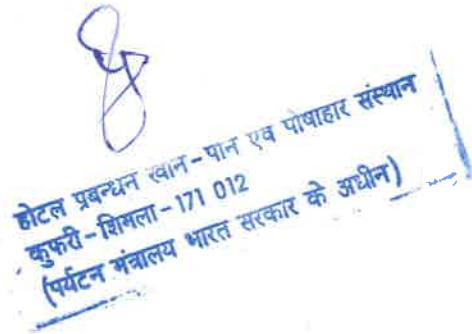 होटल प्रबन्धन खान-पान एवं पोषाहार संस्थान
कुफरी-शिमला-171 012
(पर्यटन मंत्रालय भारत सरकार के अधीन)